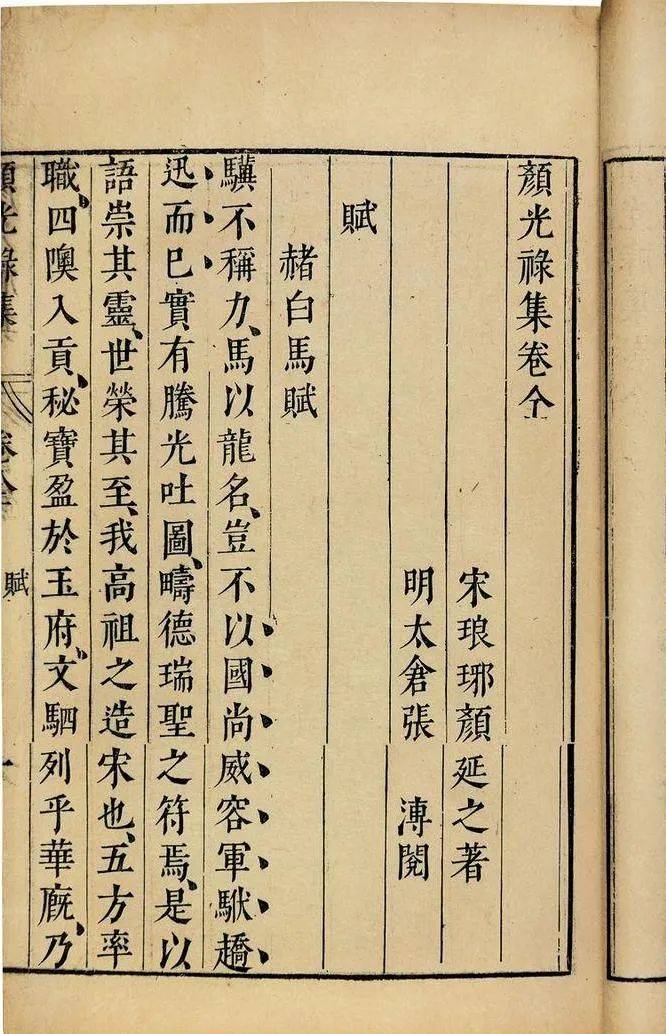 顏光祿集卷全
宋琅琊顏延之著
明太倉張溥閱
賦
赭白馬賦
驥不稱力、馬以龍名、豈不以國尚威容軍駙趫
迅而已實有騰光吐圖、疇德瑞聖之符焉、是以
語崇其靈、世榮其至、我高祖之造宋也、五方率
職、四隩入貢、秘寶盈於玉府、文駟列乎華廐、乃
顏光祿集 卷全 賦 一